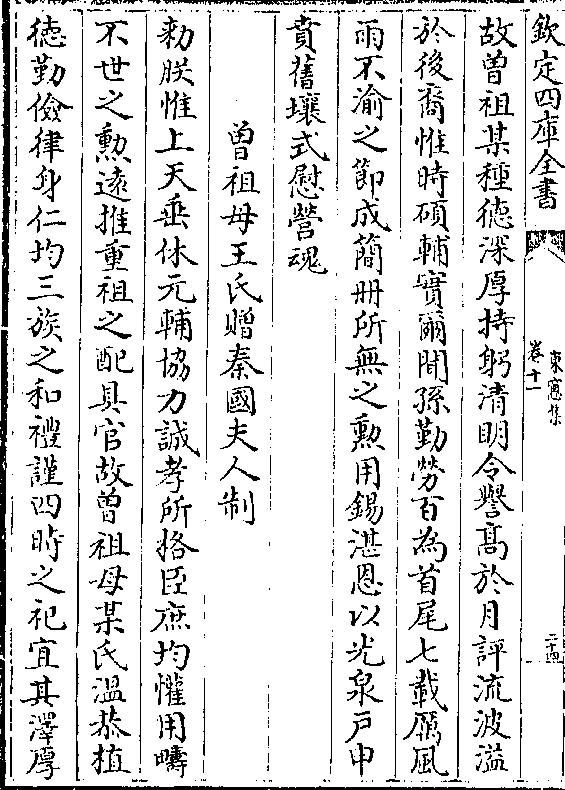 欽定四庫全書
東窻集
卷十一
二十四
故曾祖某種徳深厚持躬清明令譽髙於月評流波溢
於後裔惟時碩輔實爾聞孫勤勞百為首尾七載厲風
雨不渝之節成簡册所無之勲用錫湛恩以光泉户申
賁舊壤式慰營魂
曾祖母王氏贈秦國夫人制
勅朕惟上天垂休元輔協力誠孝所格臣庶均懽用疇
不世之勲逺推重祖之配具官故曾祖母某氏温恭植
徳勤儉律身仁均三族之和禮謹四時之祀宜其澤厚